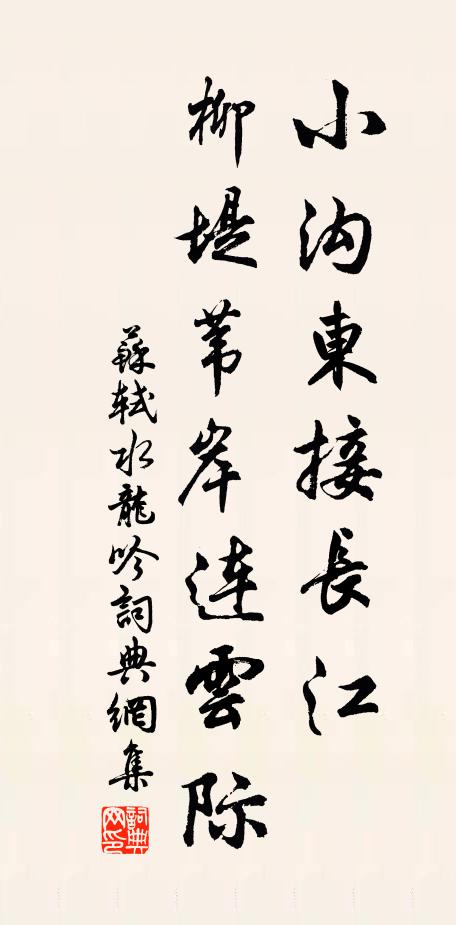 小沟東接長江
柳堤苇岸連雲际
蘇軾水龍吟詞典網集
詞典
网印